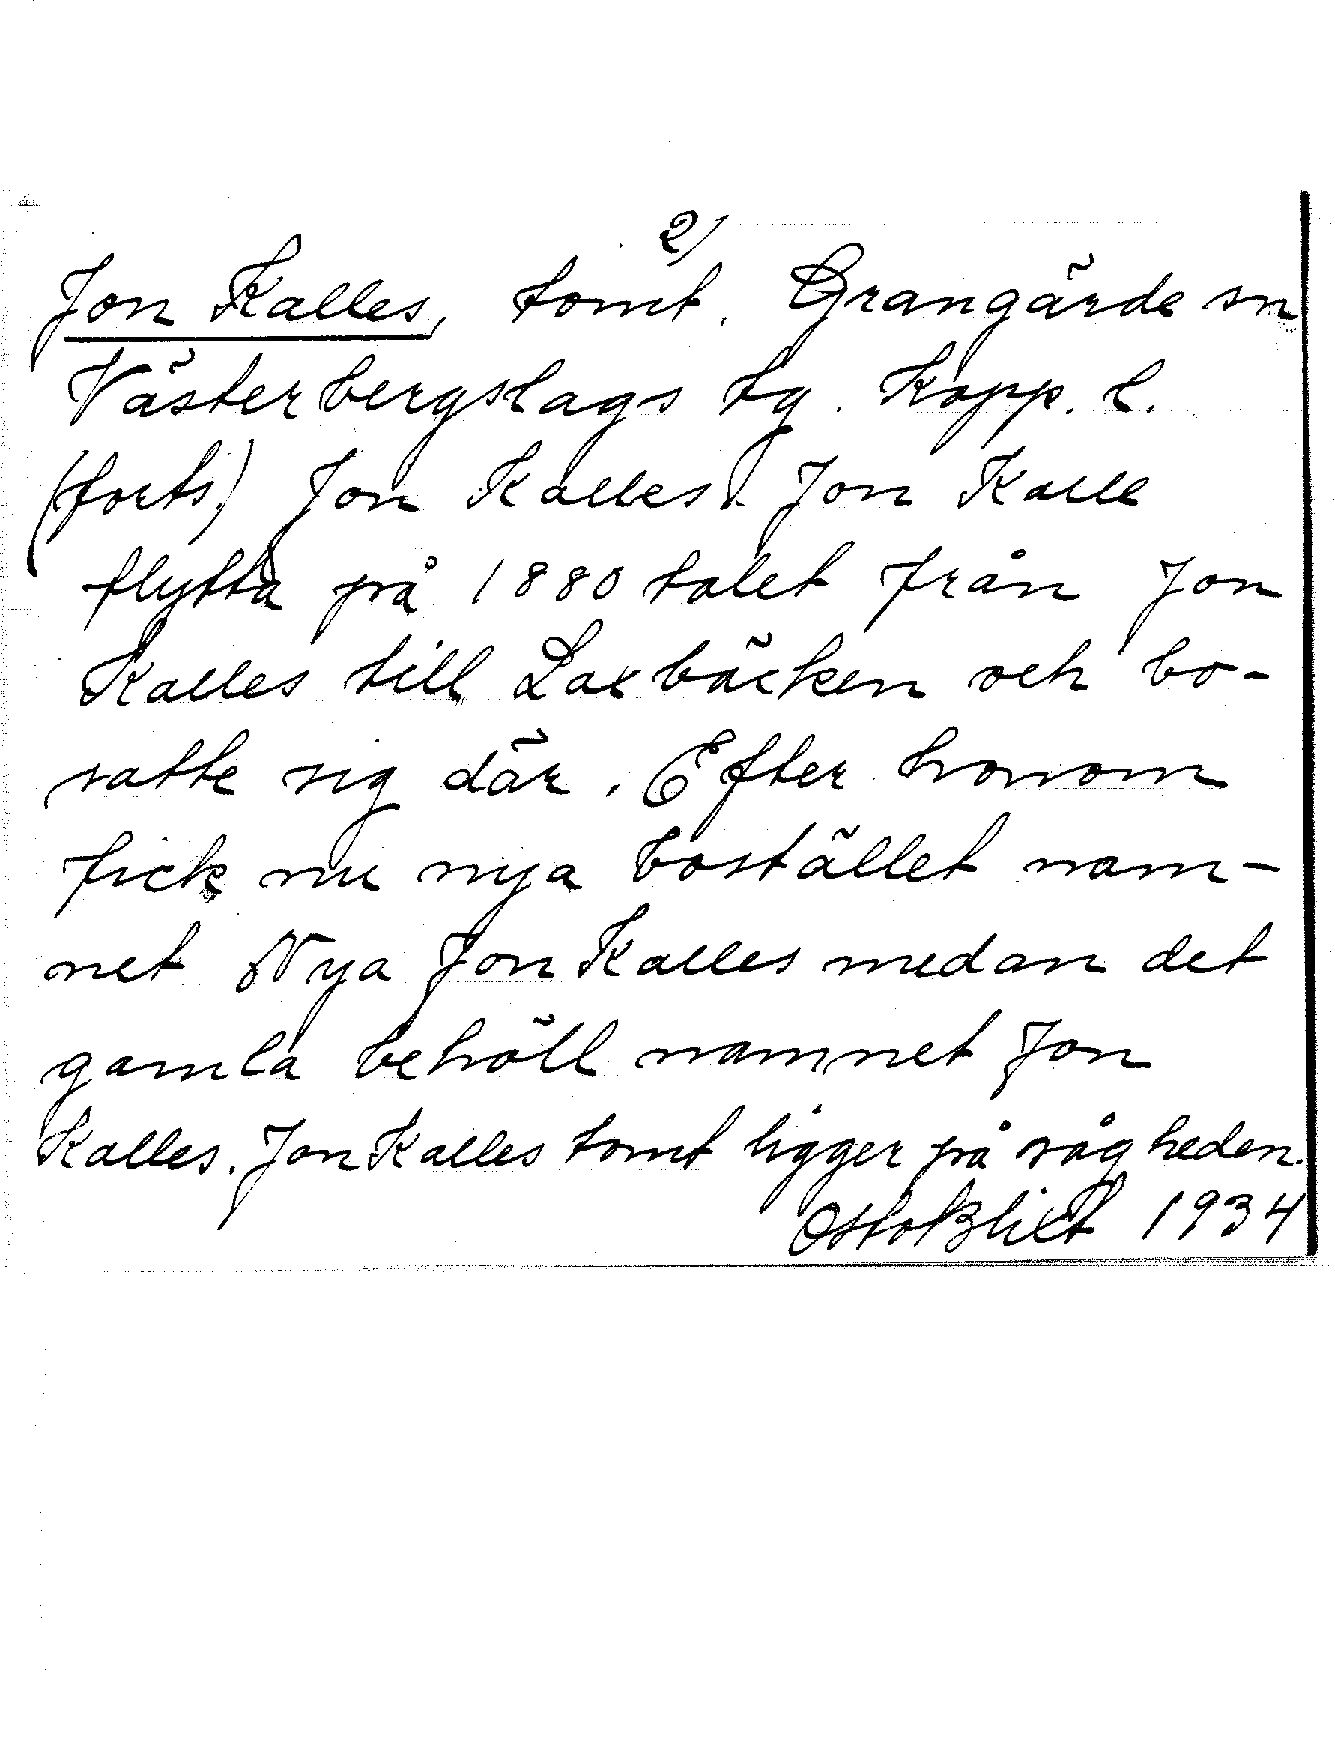 2)
Jon Kalles, tomt. Grangärde sn
Västerbergslags tg. Kopp. l.
(forts.) Jon Kalles). Jon Kalle
flytta på 1880 talet från Jon
Kalles till Laxbäcken och bo-
satte sig där. Efter honom
fick nu nya bostället nam-
net Nya Jon Kalles medan det
gamla behöll namnet Jon
Kalles. Jon Kalles tomt ligger på råg heden.
Otto Blixt 1934